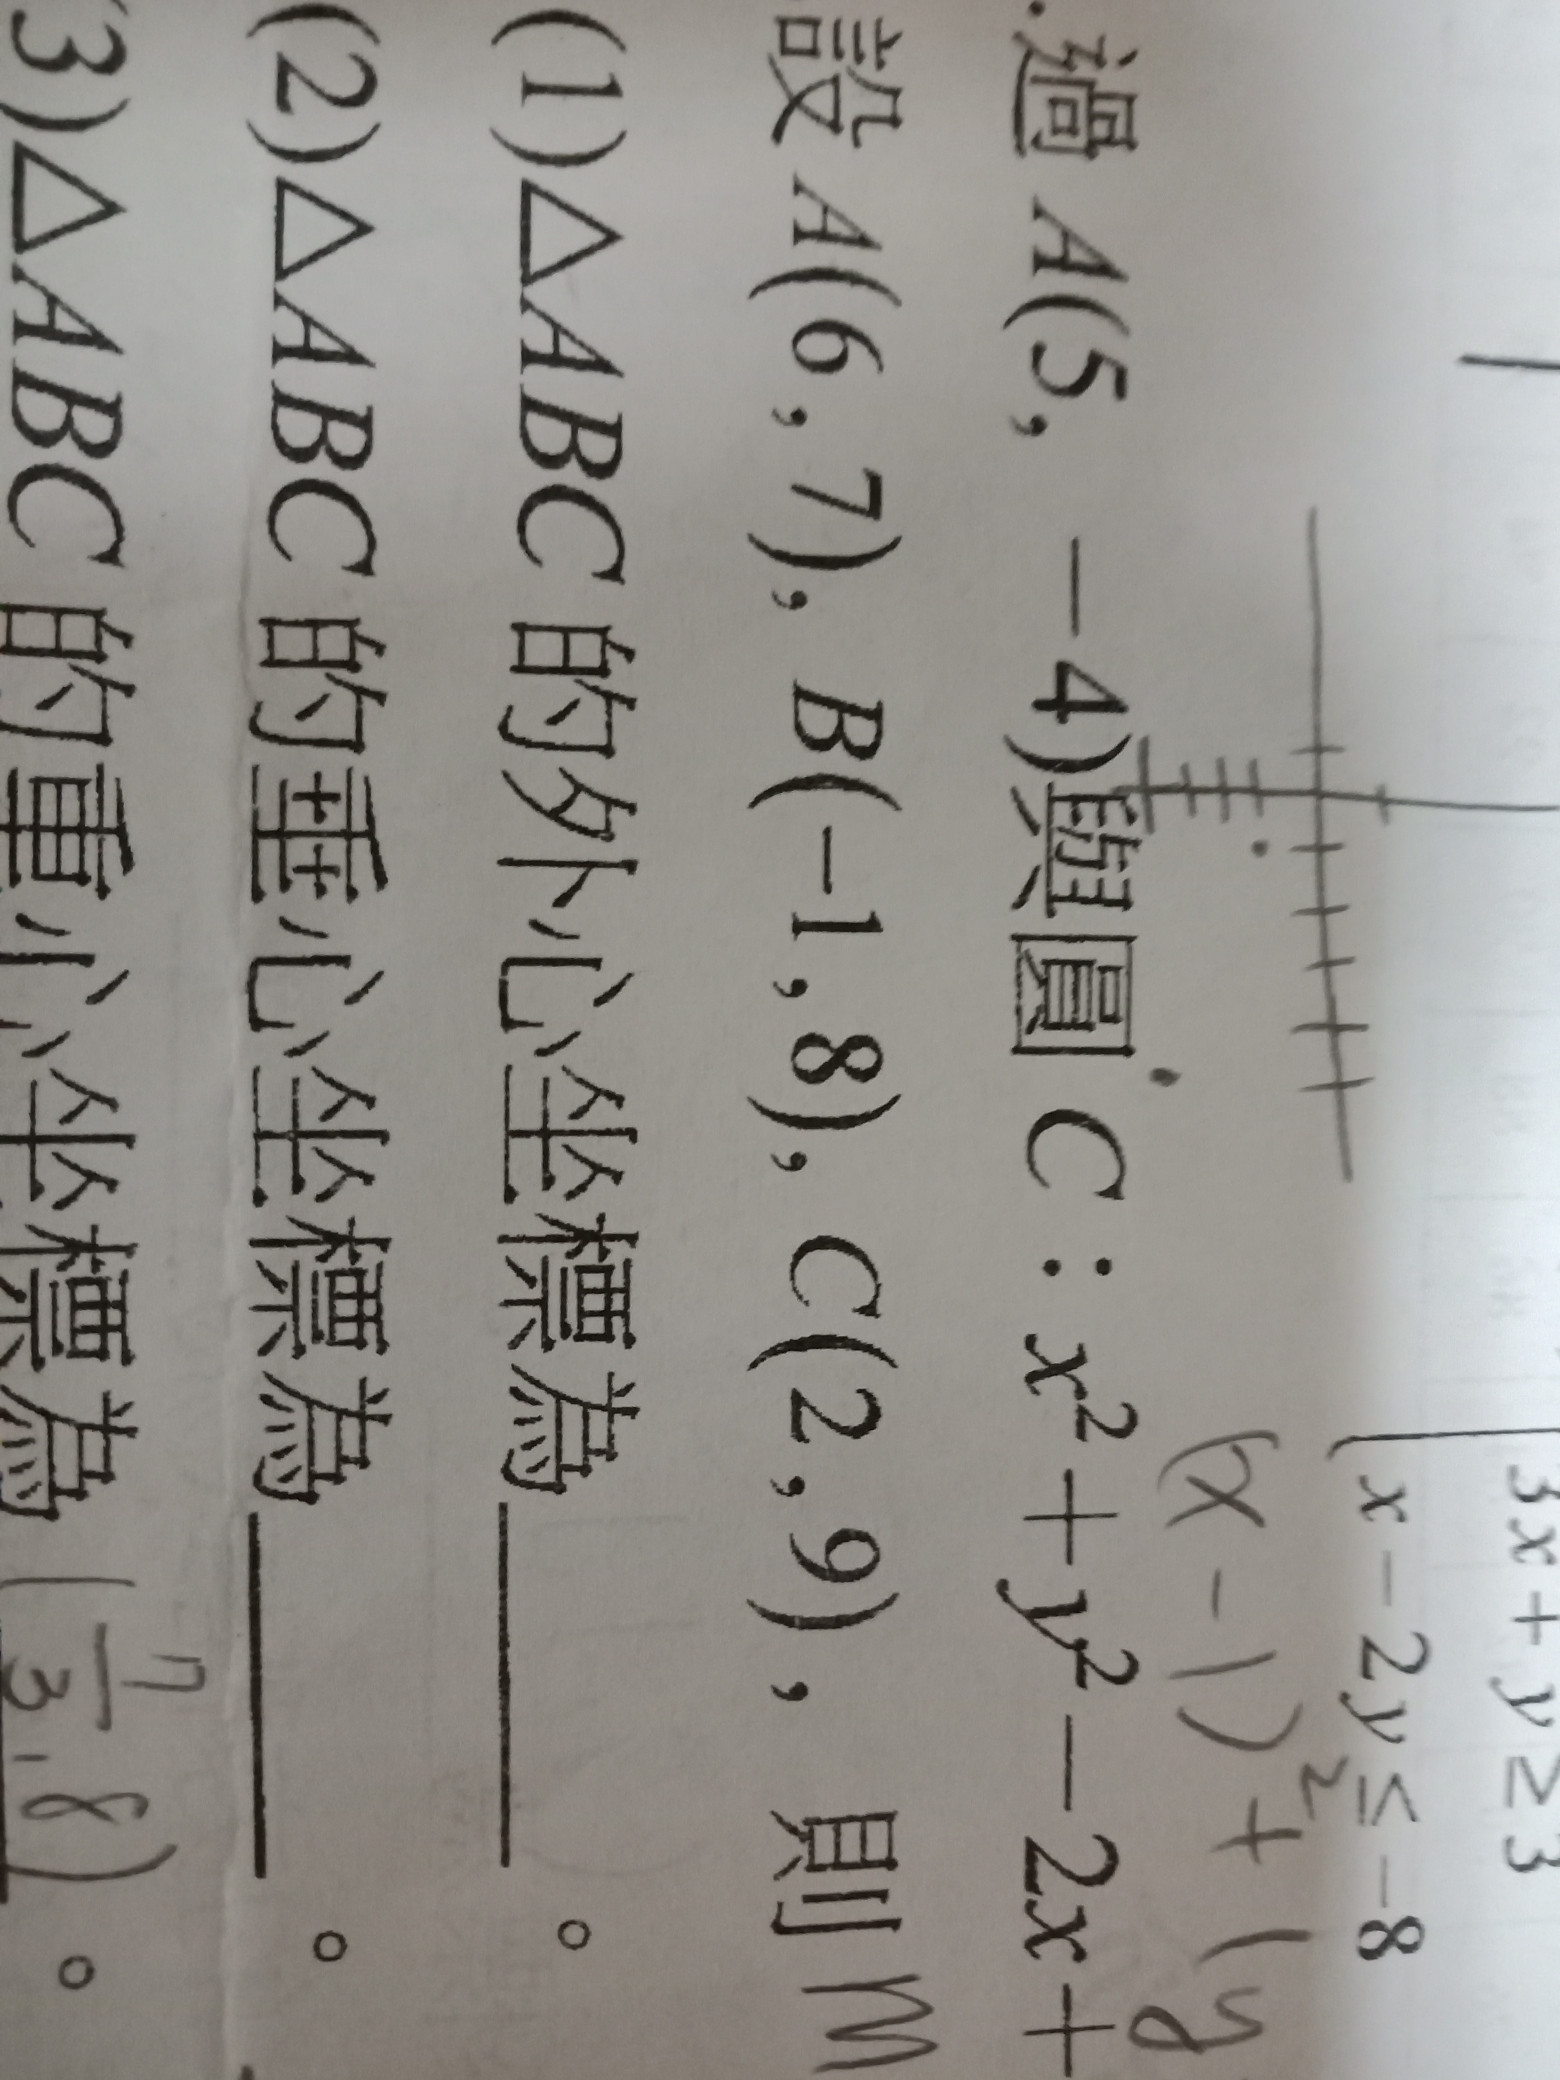 3x+y≥3
x-2y≤-8
(x-1)²+(y
.過A(5, -4)與圓C:x²+y²-2x+
設A(6,7), B(-1,8), C(2,9), 則
(1)△ABC的外心坐標為______。
(2)△ABC的垂心坐標為______。
(3)△ABC的重心坐標為(7/3,8)。